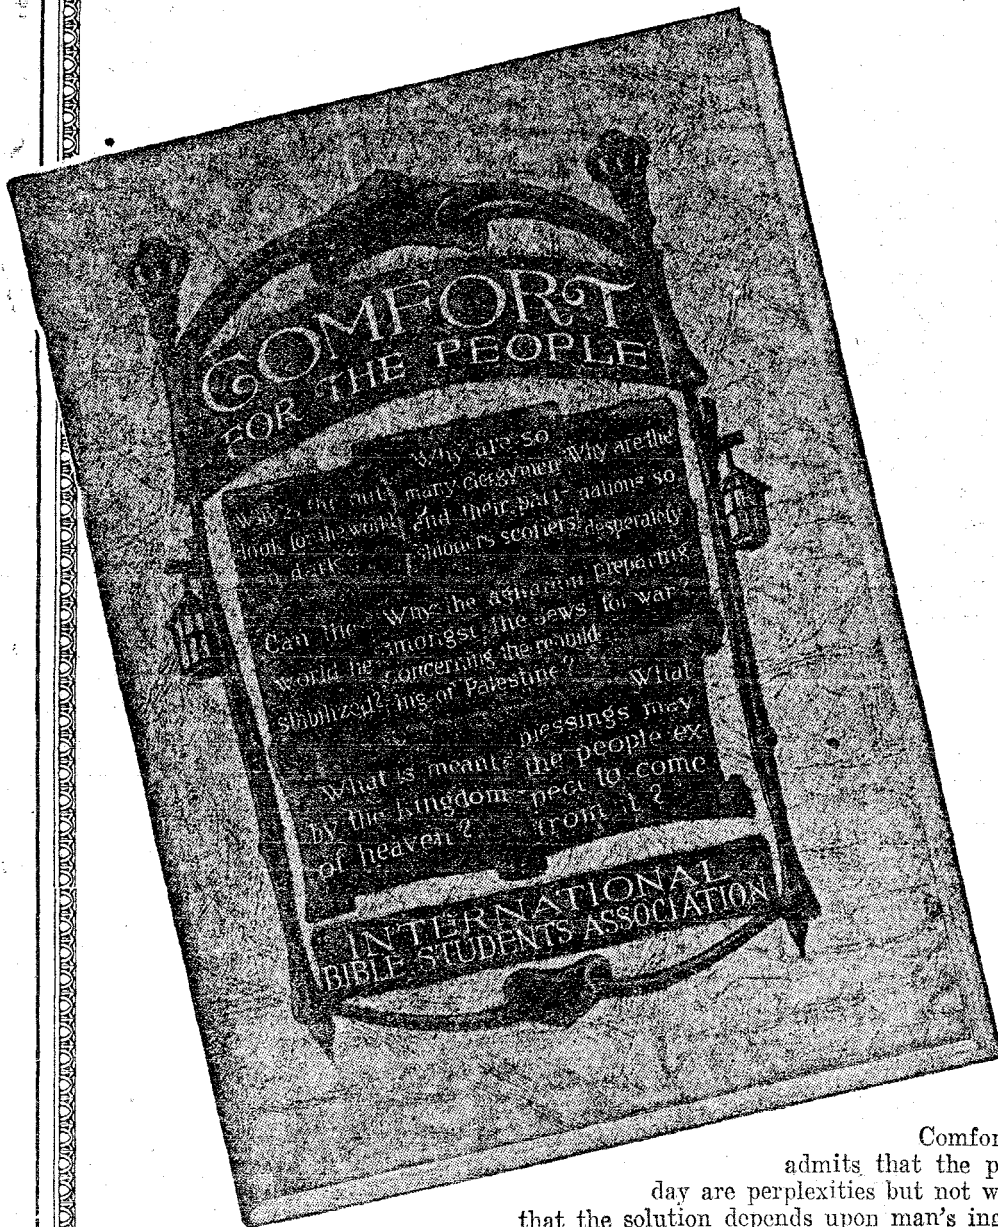 COMFORT
FOR THE PEOPLE
Why is the out-
look for the world
so dark?
Why are so
many clergymen
and their pari-
shioners scoffers?
Why are the
nations so
desperately
preparing
for war?
Can the
world be
stabilized?
Why the
amongst the Jews
concerning the rebuild-
ing of Palestine?
What is meant
by the kingdom
of heaven?
What
blessings may
the people ex-
pect to come
from it?
INTERNATIONAL
BIBLE STUDENTS ASSOCIATION
Comfor
admits that the p
day are perplexities but not w
that the solution depends upon man's ing